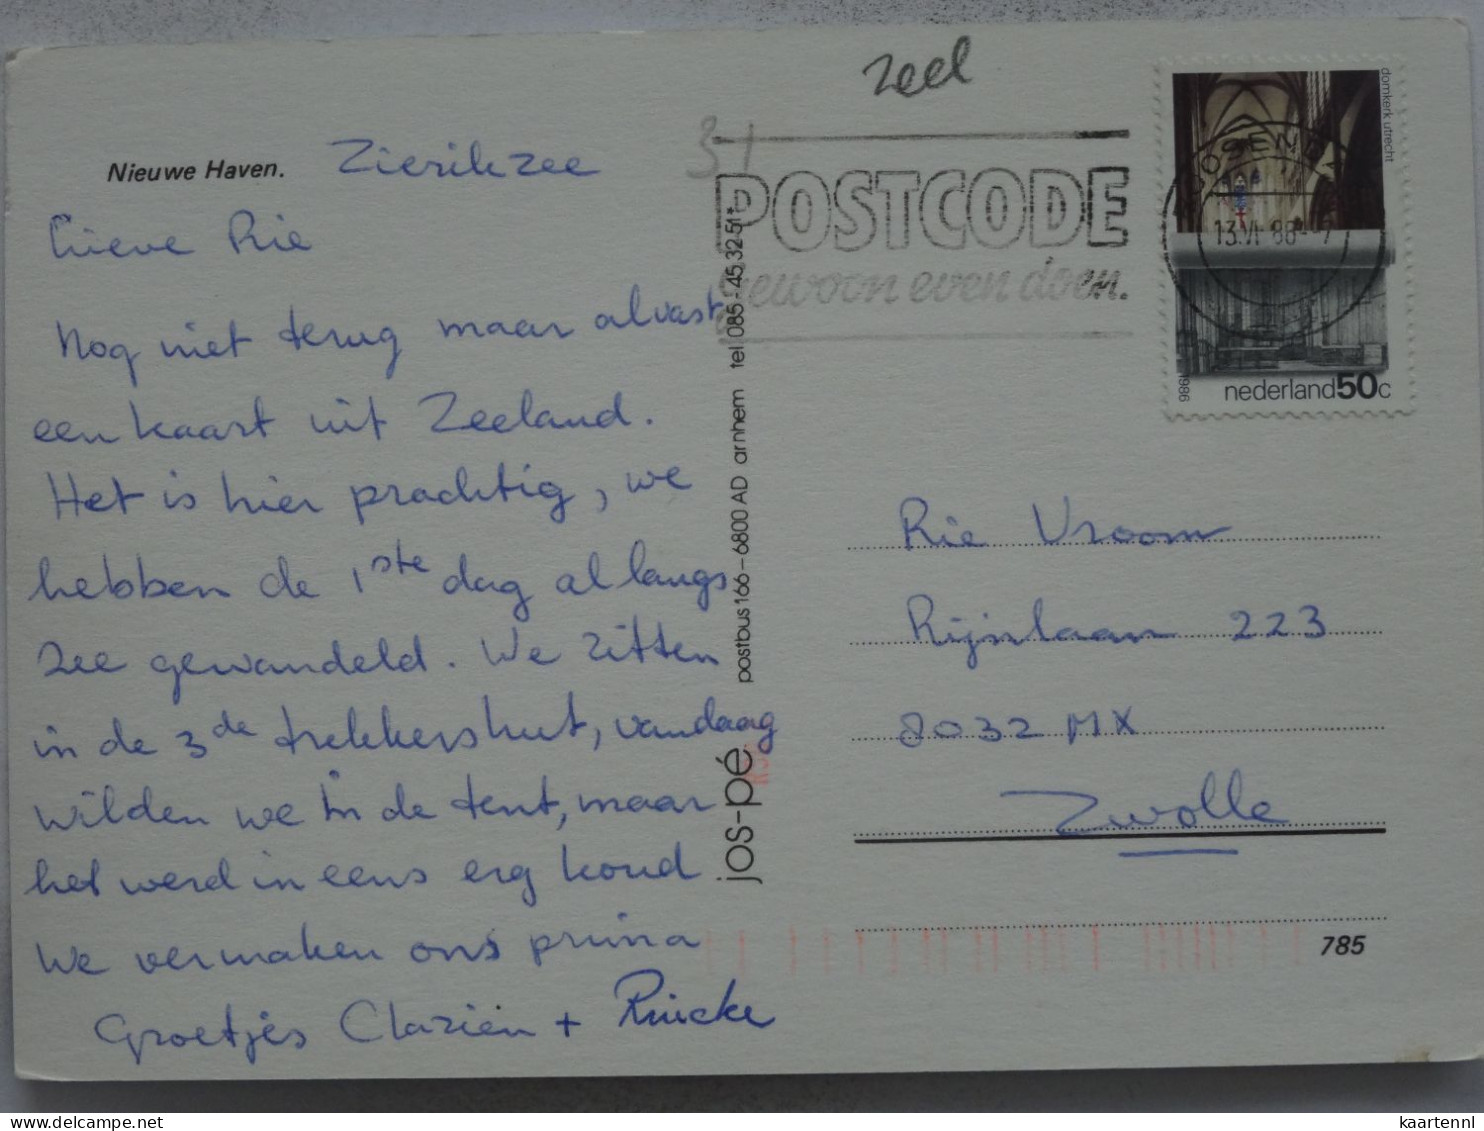 zeel
31
Nieuwe Haven. Zierikzee
POSTCODE
gewoon even doen.
OOSENDA
13.VI 88-
domkerk utrecht
1986
nederland50c
Lieve Rie
Nog niet terug maar alvast
een kaart uit Zeeland.
Het is hier prachtig, we
hebben de 1ste dag al langs
zee gewandeld. We zitten
in de 3de trekkershut, vandaag
wilden we in de tent, maar
het werd ineens erg koud
We vermaken ons prima
Groetjes Clazien + Rinieke
jos-pé postbus 166-6800 AD arnhem tel. 085-453251*
Rie Vroom
Rijnlaan 223
8032 MX
Zwolle
785
kaartennl